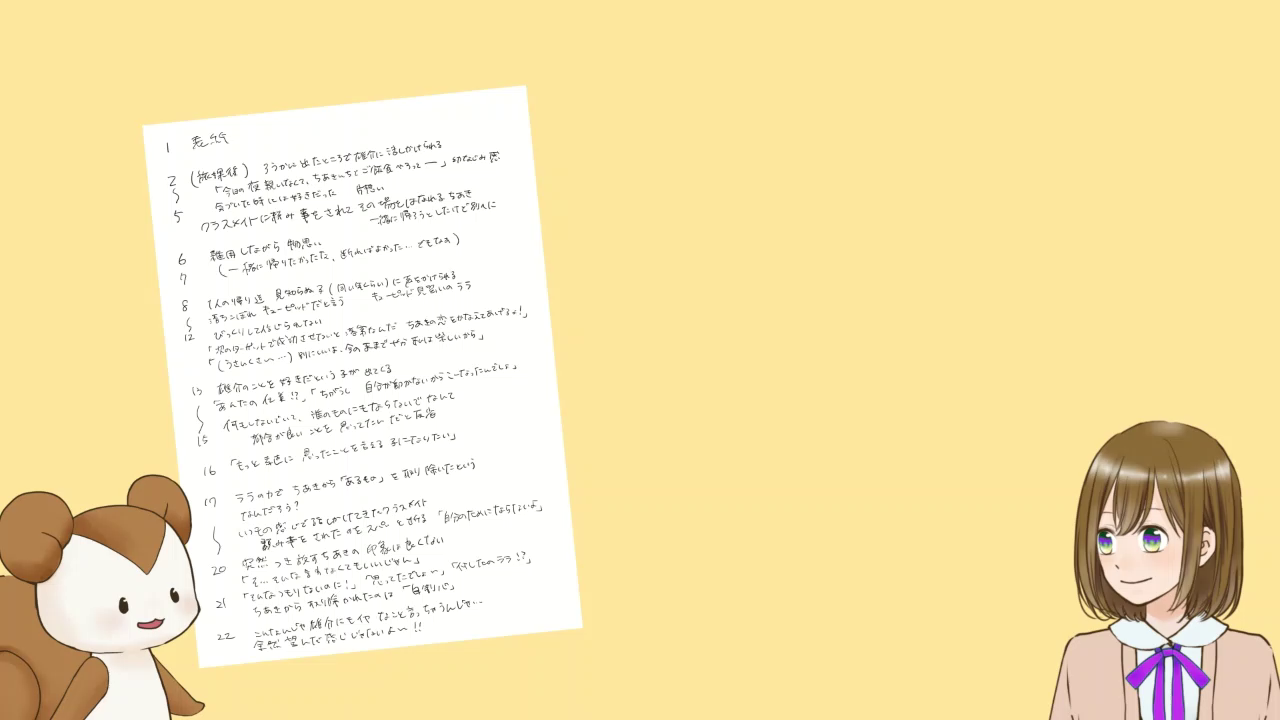 1 表紙
2 (放課後) ろうかに出たところで雄介に話しかけられる
「今日の夜親いなくて、ちあきんちとご飯食べやろって―」幼なじみ 悪
気づいた時には好きだった 片想い
5 クラスメイトに頼み事をされてその場をはなれるちあき
一緒に帰ろうとしたけど別々に
6 雑用しながら物思い
7 (一緒に帰りたかったな、断ればよかった… でもなぁ)
8 1人の帰り道 見知らぬ子(同い年くらい)に声をかけられる
落ちこぼれキューピッドだと言う キューピッド見習いのララ
12 びっくりして信じられない
「次のターゲットで成功させないと落第なんだ ちあきの恋をかなえてあげるよ!」
「(うさんくさい…)別にいいよ、今のままでやかすれば楽しいから」
13 雄介のことを好きだという子が出てくる
「あんたの仕業!?」「ちがうし 自分が動かないからこーなったんでしょ」
何もしないでいて、誰のものにもならないでなんて
15 都合が良いことを思ってたんだと反省
16 「もっと素直に思ったことを言える子になりたい」
17 ララの力でちあきから「あるもの」を取り除いたという
なんだろう?
いつもの感じで話しかけてきたクラスメイト
頼み事をされたのをズバッと断る「自分のためにならないよ」
20 突然つき放すちあきの印象は良くない
「そ…そんな言わなくてもいいじゃん」
「そんなつもりないのに!」「思ってたでしょ〜」「何したのララ!?」
21 ちあきから取り除かれたのは「自制心」
22 こんなんじゃ雄介にもイヤなこと言っちゃうんじゃ…
全然望んだ感じじゃないよ〜!!